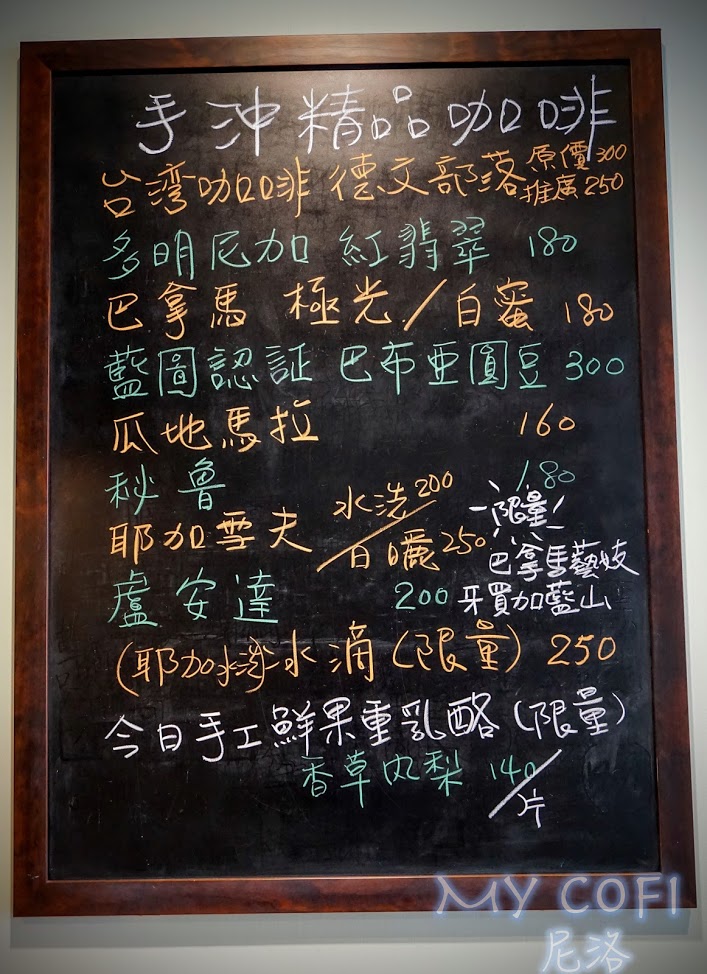 手沖精品咖啡
台湾咖啡 德文部落 原價300
推廣250
多明尼加 紅翡翠 180
巴拿馬 極光/白蜜 180
藍圖認証 巴布亞圓豆 300
瓜地馬拉 160
秘魯 180
耶加雪夫 水洗200/日曬250
限量
巴拿馬藝妓
牙買加藍山
盧安達 200
(耶加水洗)冰滴(限量) 250
今日手工鮮果重乳酪(限量)
香草凤梨 140/片
MY COFI
尼洛